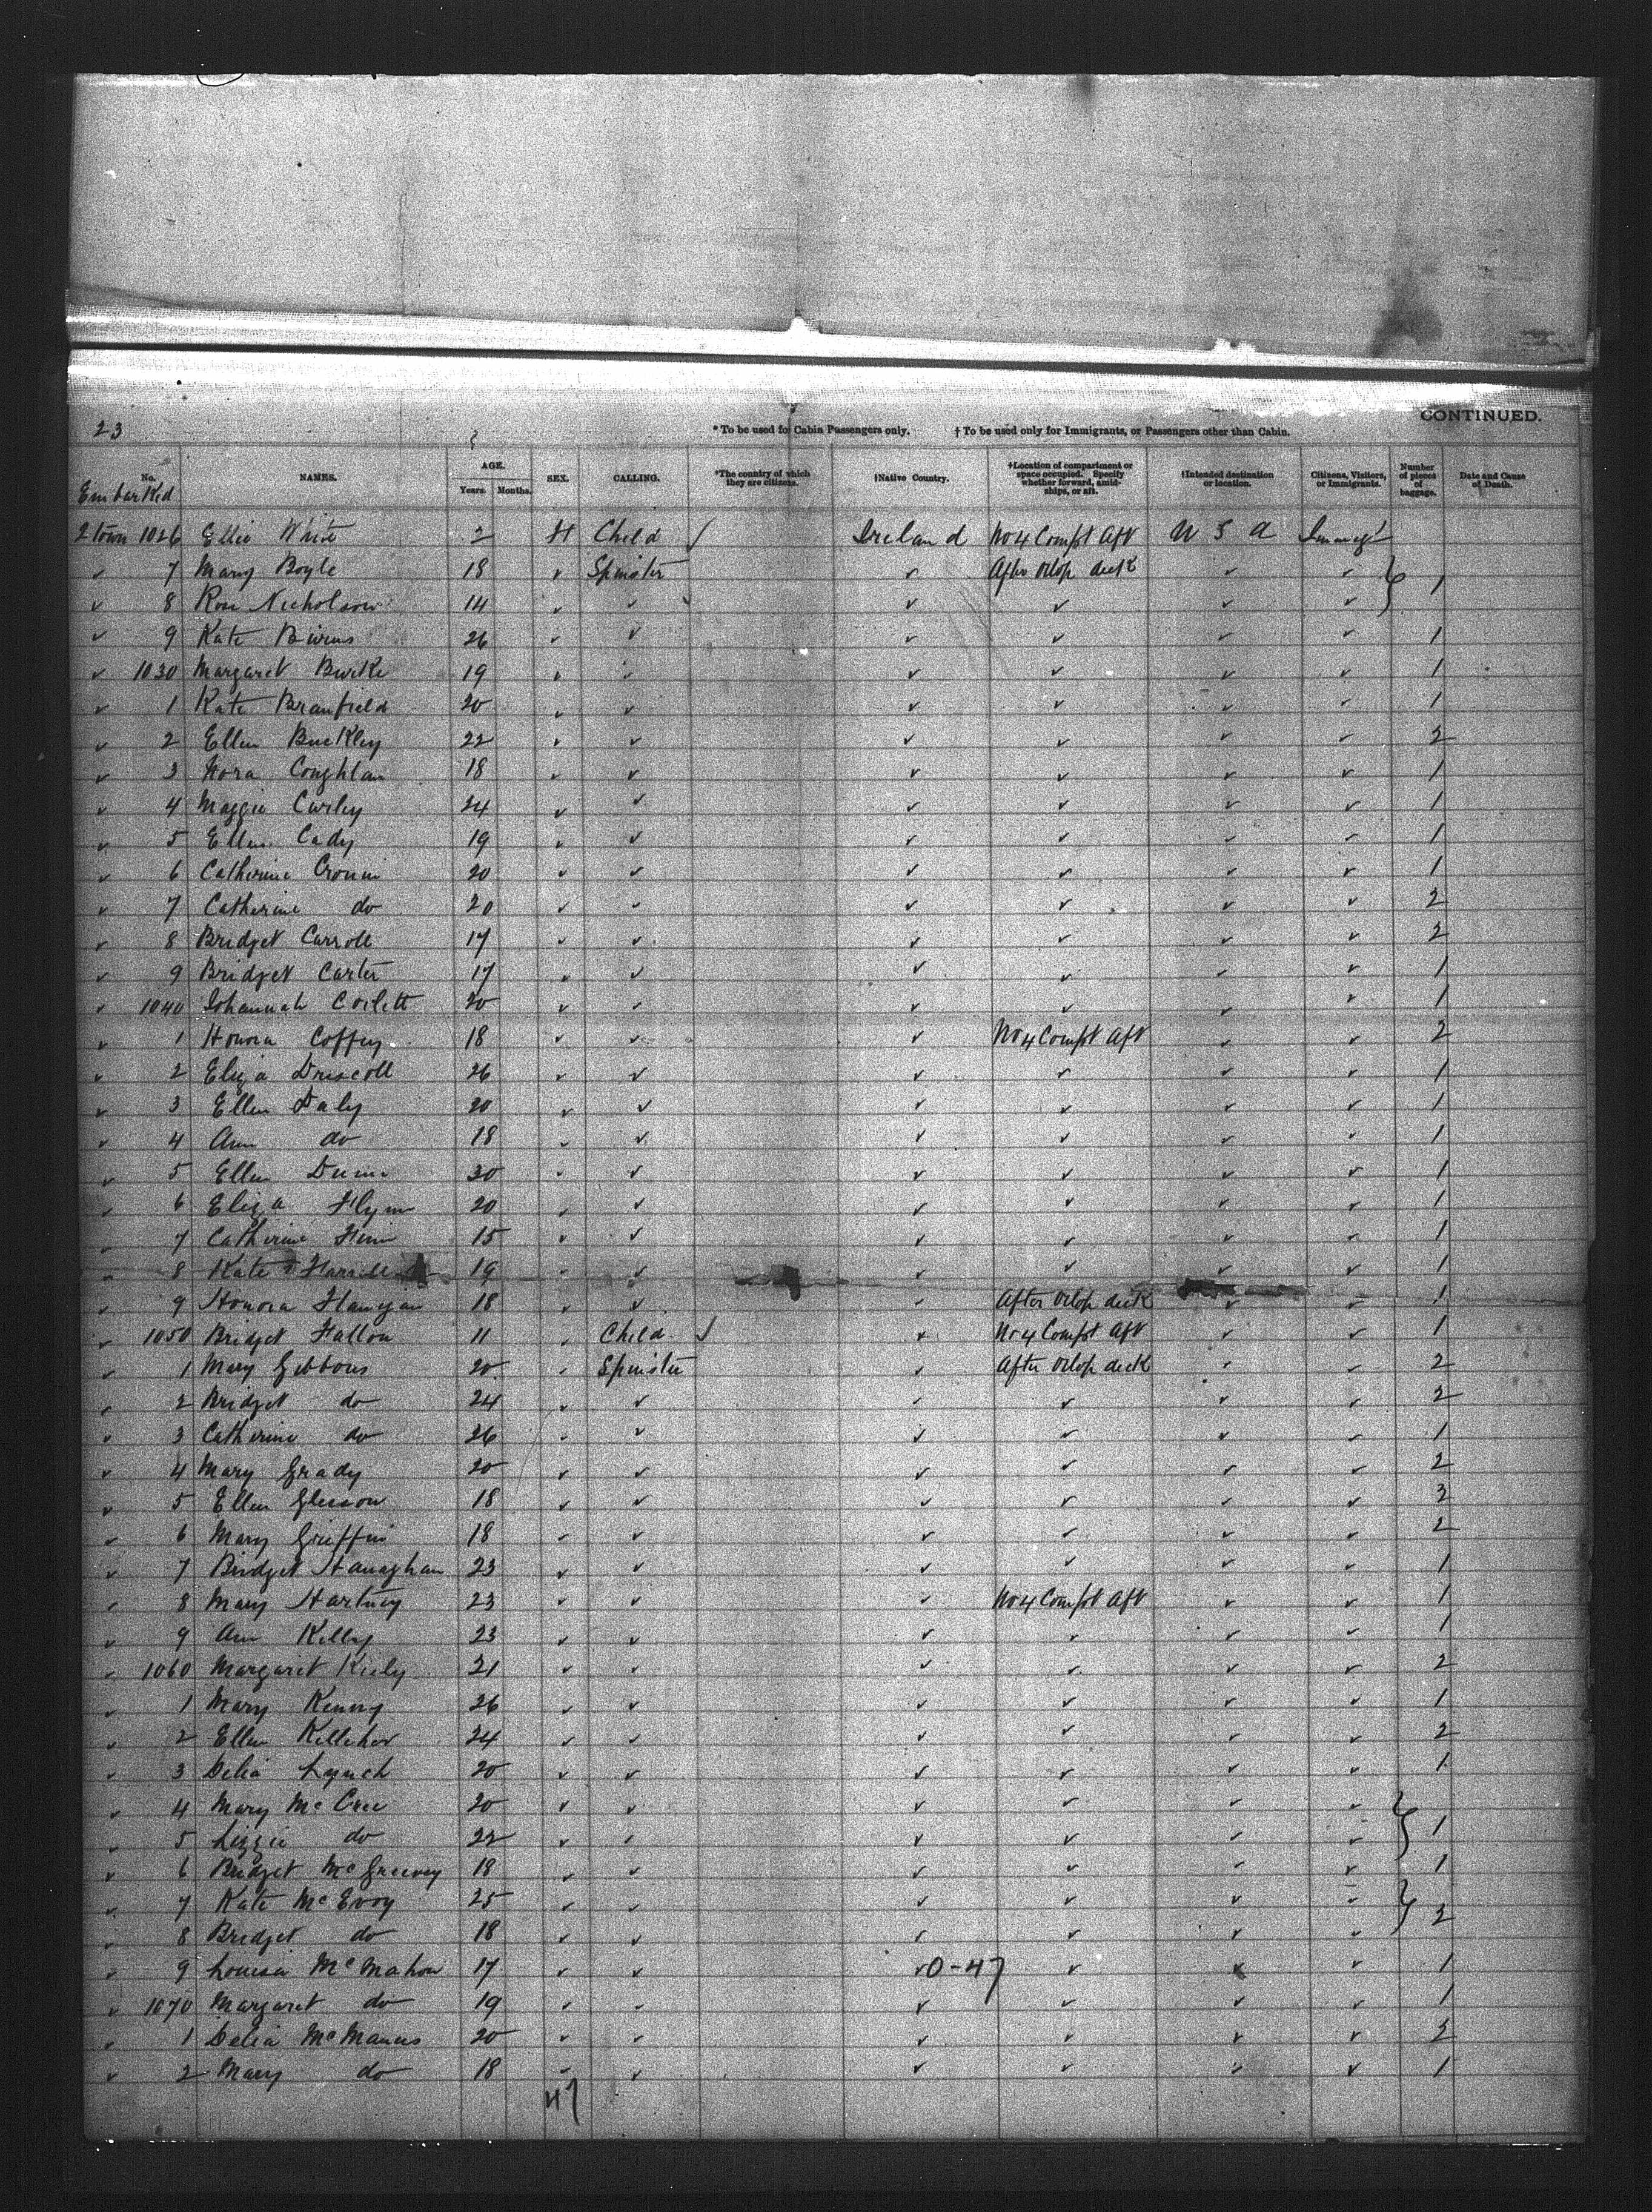 CONTINUED.
23
* To be used for Cabin Passengers only. † To be used only for Immigrants, or Passengers other than Cabin.
No. NAMES. AGE. Years. Months. SEX. CALLING. *The country of which they are citizens. †Native Country. †Location of compartment or space occupied. Specify whether forward, amidships, or aft. †Intended destination or location. Citizens, Visitors, or Immigrants. Number of pieces of baggage. Date and Cause of Death.
Embarked
2 Town 1026 Ellie White 2 Child ✓ Ireland No 4 Compt Aft U S A
✓ 7 Mary Boyle 18 ✓ Spinster ✓ After Orlop deck ✓ ✓ } 1
✓ 8 Rose Nicholson 14 ✓ ✓ ✓ ✓ ✓ ✓
✓ 9 Kate Burns 26 ✓ ✓ ✓ ✓ ✓ ✓ 1
✓ 1030 Margaret Burke 19 ✓ ✓ ✓ ✓ ✓ ✓ 1
✓ 1 Kate Branfield 20 ✓ ✓ ✓ ✓ ✓ ✓ 1
✓ 2 Ellen Buckley 22 ✓ ✓ ✓ ✓ ✓ ✓ 2
✓ 3 Nora Coughlan 18 ✓ ✓ ✓ ✓ ✓ ✓ 1
✓ 4 Maggie Curley 24 ✓ ✓ ✓ ✓ ✓ ✓ 1
✓ 5 Ellen Cady 19 ✓ ✓ ✓ ✓ ✓ ✓ 1
✓ 6 Catherine Cronin 20 ✓ ✓ ✓ ✓ ✓ ✓ 1
✓ 7 Catherine do 20 ✓ ✓ ✓ ✓ ✓ ✓ 2
✓ 8 Bridget Carroll 17 ✓ ✓ ✓ ✓ ✓ ✓ 2
✓ 9 Bridget Carter 17 ✓ ✓ ✓ ✓ ✓ ✓ 1
✓ 1040 Johannah Corlett 20 ✓ ✓ ✓ ✓ ✓ ✓ 1
✓ 1 Honora Coffey 18 ✓ ✓ ✓ No 4 Compt Aft ✓ ✓ 2
✓ 2 Eliza Driscoll 26 ✓ ✓ ✓ ✓ ✓ ✓ 1
✓ 3 Ellen Daly 20 ✓ ✓ ✓ ✓ ✓ ✓ 1
✓ 4 Ann do 18 ✓ ✓ ✓ ✓ ✓ ✓ 1
✓ 5 Ellen Dunne 30 ✓ ✓ ✓ ✓ ✓ ✓ 1
✓ 6 Eliza Flynn 20 ✓ ✓ ✓ ✓ ✓ ✓ 1
✓ 7 Catherine Finn 15 ✓ ✓ ✓ ✓ ✓ ✓ 1
✓ 8 Kate 19 ✓ ✓ ✓ ✓ ✓ ✓ 1
✓ 9 Honora Flanigan 18 ✓ ✓ ✓ After Orlop deck ✓ ✓ 1
✓ 1050 Bridget Fallon 11 ✓ Child ✓ ✓ No 4 Compt Aft ✓ ✓ 1
✓ 1 Mary Gibbons 20 ✓ Spinster ✓ After Orlop deck ✓ ✓ 2
✓ 2 Bridget do 24 ✓ ✓ ✓ ✓ ✓ ✓ 2
✓ 3 Catherine do 26 ✓ ✓ ✓ ✓ ✓ ✓ 1
✓ 4 Mary Grady 20 ✓ ✓ ✓ ✓ ✓ ✓ 2
✓ 5 Ellen Gleeson 18 ✓ ✓ ✓ ✓ ✓ ✓ 3
✓ 6 Mary Griffin 18 ✓ ✓ ✓ ✓ ✓ ✓ 2
✓ 7 Bridget Hanaghan 23 ✓ ✓ ✓ ✓ ✓ ✓ 1
✓ 8 Mary Hartney 23 ✓ ✓ ✓ No 4 Compt Aft ✓ ✓ 1
✓ 9 Ann Kelly 23 ✓ ✓ ✓ ✓ ✓ ✓ 1
✓ 1060 Margaret Kiely 21 ✓ ✓ ✓ ✓ ✓ ✓ 2
✓ 1 Mary Kenny 26 ✓ ✓ ✓ ✓ ✓ ✓ 1
✓ 2 Ellen Kelleher 24 ✓ ✓ ✓ ✓ ✓ ✓ 2
✓ 3 Delia Lynch 20 ✓ ✓ ✓ ✓ ✓ ✓ 1
✓ 4 Mary McCue 20 ✓ ✓ ✓ ✓ ✓ ✓ } 1
✓ 5 Lizzie do 22 ✓ ✓ ✓ ✓ ✓ ✓
✓ 6 Bridget McGreevey 18 ✓ ✓ ✓ ✓ ✓ ✓ 1
✓ 7 Kate McEvoy 25 ✓ ✓ ✓ ✓ ✓ ✓ } 2
✓ 8 Bridget do 18 ✓ ✓ ✓ ✓ ✓ ✓
✓ 9 Louisa McMahon 17 ✓ ✓ ✓ 0-47 ✓ ✓ ✓ 1
✓ 1070 Margaret do 19 ✓ ✓ ✓ ✓ ✓ ✓ 1
✓ 1 Delia McManus 20 ✓ ✓ ✓ ✓ ✓ ✓ 2
✓ 2 Mary do 18 ✓ ✓ ✓ ✓ ✓ ✓ 1
47